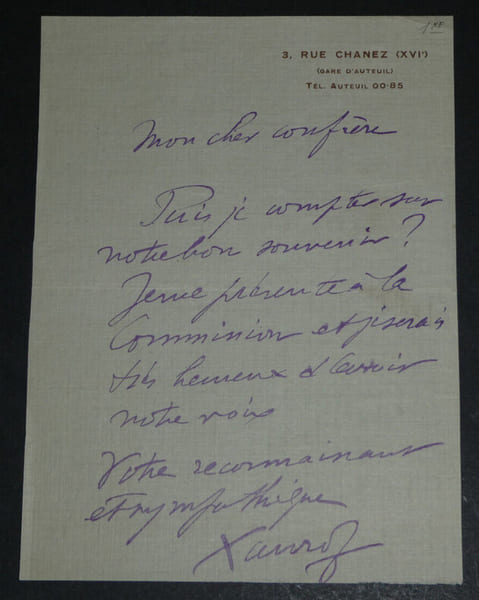 1 XF
3, RUE CHANEZ (XVIᵉ)
(GARE D'AUTEUIL)
TÉL. AUTEUIL 00-85
Mon cher confrère
Puis je compter sur
votre bon souvenir ?
Je me présente à la
Commission et je serais
très heureux d'avoir
votre voix
Votre reconnaissant
et sympathique
Xanrof